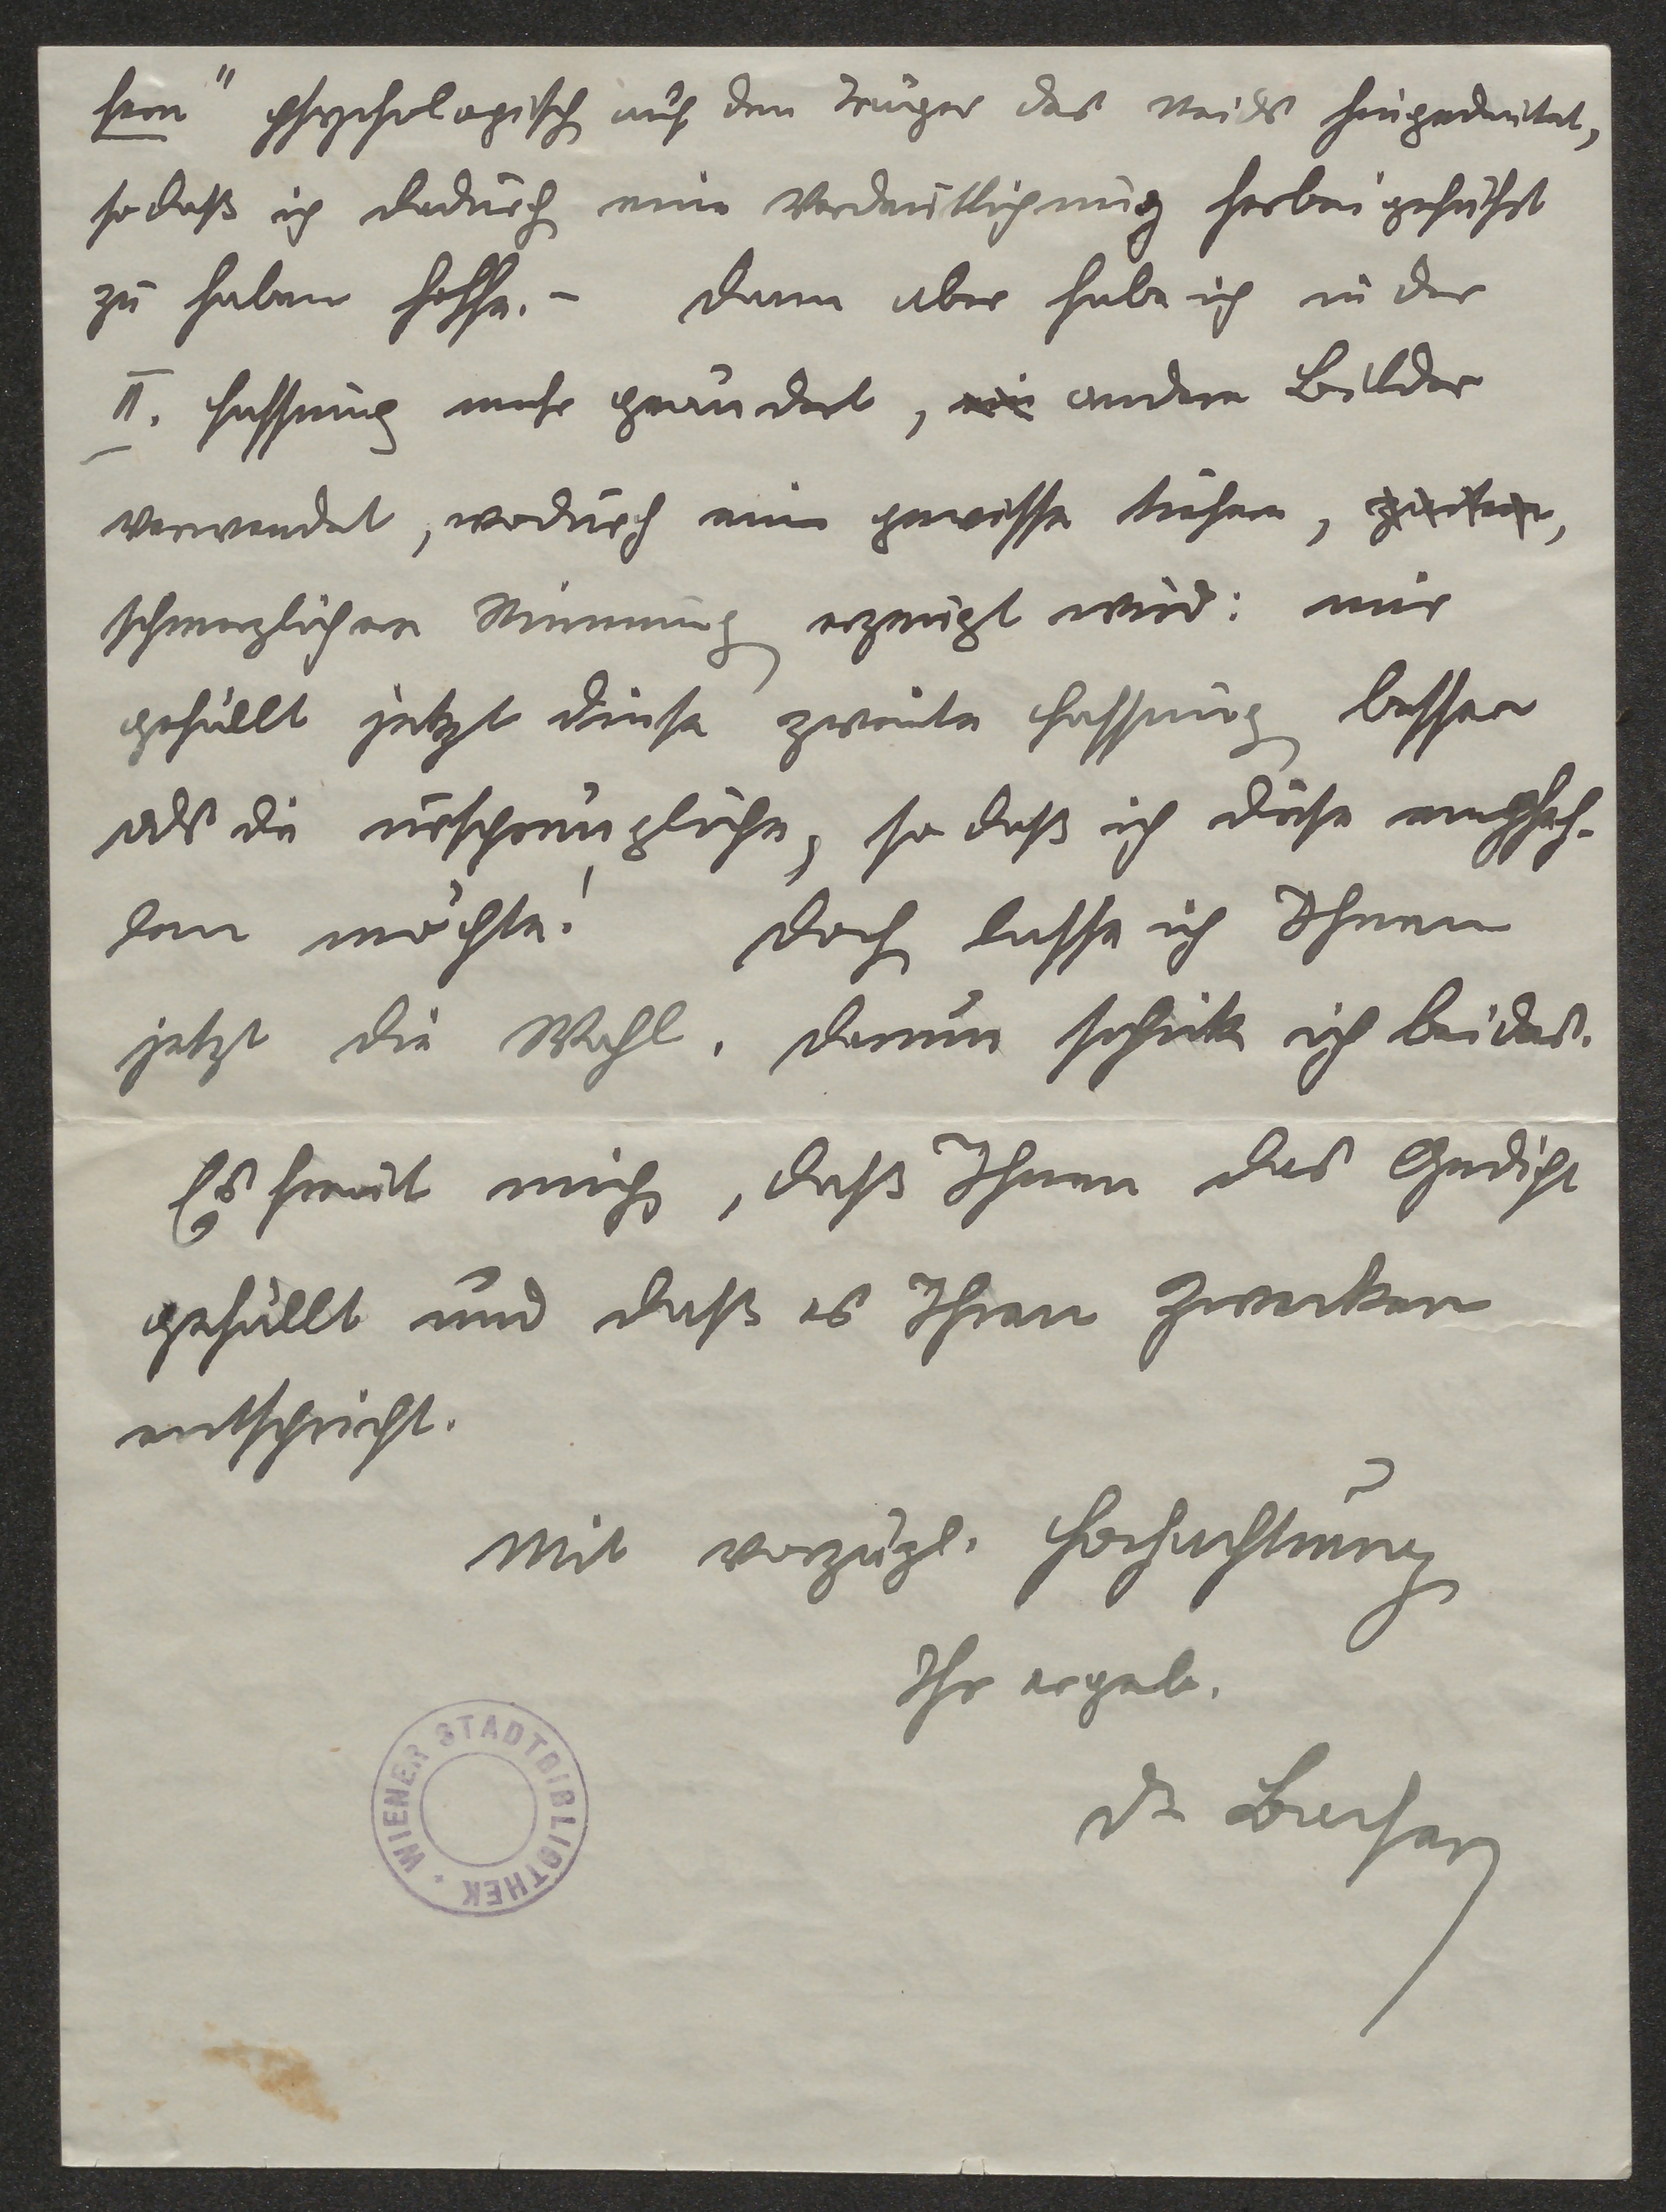 hern" psychologisch auf den Träger des Neids hingedeutet,
sodaß ich dadurch eine Verdeutlichung herbeigeführt
zu haben hoffe. - Dann aber habe ich in der
II. Fassung mehr geändert, andere Bilder
verwendet, wodurch eine gewisse tiefere,
schmerzlichere Stimmung erzeugt wird: mir
gefällt jetzt diese zweite Fassung besser
als die ursprüngliche, so daß ich diese empfeh-
len möchte! Doch lasse ich Ihnen
jetzt die Wahl. Darum schicke ich beides.
Es freut mich, daß Ihnen das Gedicht
gefällt und daß es Ihren Zwecken
entspricht.
Mit vorzügl. Hochachtung
Ihr ergeb.
Dr
WIENER STADTBIBLIOTHEK